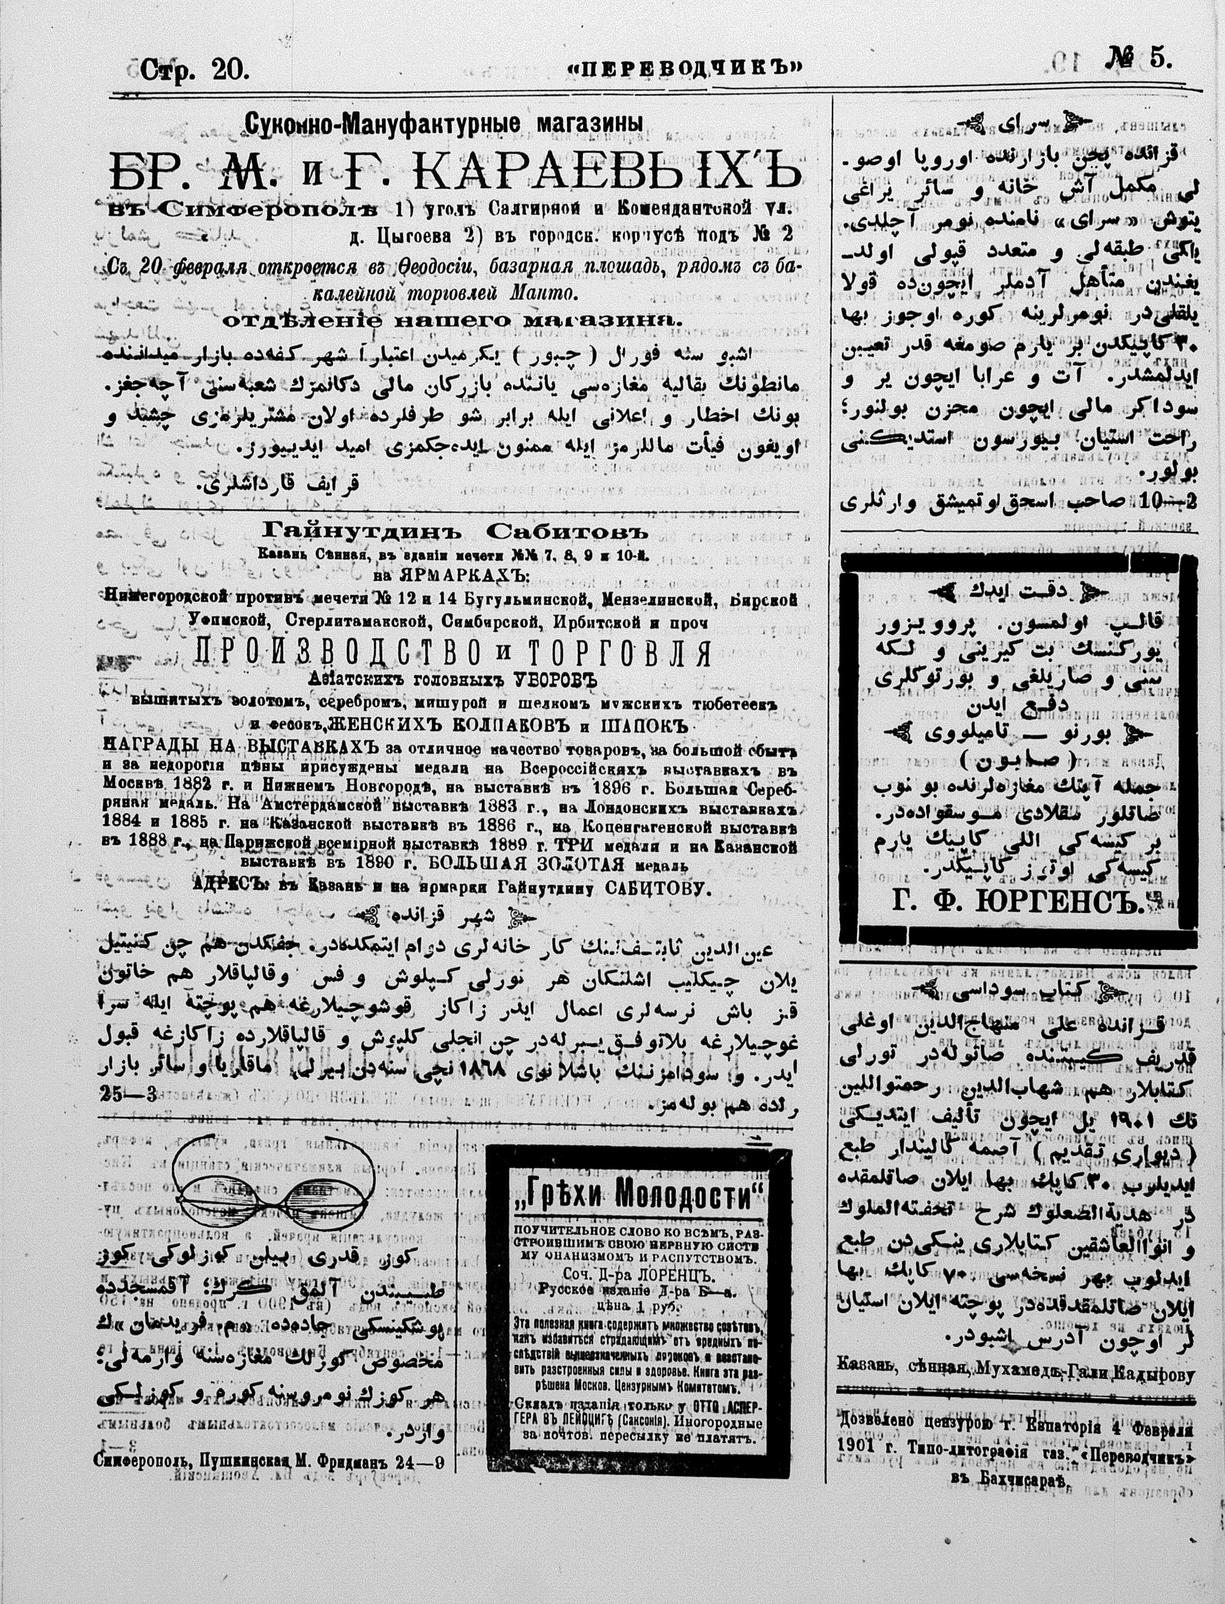 Стр. 20.
«ПЕРЕВОДЧИКЪ»
№ 5.
Суконно-Мануфактурные магазины
БР. М. и Г. КАРАЕВЫХЪ
въ Симферополѣ 1) уголъ Салгирной и Комендантской ул.
д. Цыгоева 2) въ городск. корпусѣ подъ № 2
Съ 20 февраля откроется въ Ѳеодосіи, базарная площадь, рядомъ съ ба-
калейной торговлей Манто.
отдѣленіе нашего магазина.
اشبو سنه فورال ( چبور ) یکرمیدن اعتباراً شهر کفه‌ده بازار میداننده
مانطونك بقالیه مغازه‌سی یاننده بازرکان مالی دکانمزك شعبه‌سنی آچه‌جغز.
بونك اخطار و اعلانی ایله برابر شو طرفلرده اولان مشتریلرمزی چشید و
اویغون فیأت ماللرمز ایله ممنون ایده‌جکمزی امید ایدییورز.
قرایف قارداشلری.
Гайнутдинъ Сабитовъ
Казань Сѣнная, въ зданіи мечети №№ 7, 8, 9 и 10-й.
на ЯРМАРКАХЪ:
Нижегородской противъ мечети № 12 и 14 Бугульминской, Мензелинской, Бирской
Уфимской, Стерлитамакской, Симбирской, Ирбитской и проч
ПРОИЗВОДСТВО и ТОРГОВЛЯ
Азіатскихъ головныхъ УБОРОВЪ
вышитыхъ золотомъ, серебромъ, мишурой и шелкомъ мужскихъ тюбетеекъ
и фесокъ, ЖЕНСКИХЪ КОЛПАКОВЪ и ШАПОКЪ
НАГРАДЫ НА ВЫСТАВКАХЪ за отличное качество товаровъ, за большой сбытъ
и за недорогія цѣны присуждены медали на Всероссійскихъ выставкахъ въ
Москвѣ 1882 г. и Нижнемъ Новгородѣ, на выставкѣ въ 1896 г. Большая Сереб-
ряная медаль. На Амстердамской выставкѣ 1883 г., на Лондонскихъ выставкахъ
1884 и 1885 г. на Казанской выставкѣ въ 1886 г., на Коценгагенской выставкѣ
въ 1888 г., на Парижской всемірной выставкѣ 1889 г. ТРИ медали и на Казанской
выставкѣ въ 1890 г. БОЛЬШАЯ ЗОЛОТАЯ медаль
АДРЕСЪ: въ Казань и на ярмарки Гайнутдину САБИТОВУ.
شهر قزانده
عین‌الدین ثابتـف‌ـنك کار خانه‌لری دوام ایتمکده‌در. جفکدن هم چن کنیتیل
یلان چیکلیب اشلنکان هر نورلی کـپلوش و فس وقالپاقلار هم خاتون
قـز باش نرسه‌لری اعمال ایدر زاکاز قوشوچیلارغه هم پوچته ایله سرا
غوچیلارغه بلاتوفـق یـبرله‌در چن انجلی کلپوش و قالپاقلارده زاکازغه قبول
ایدر. و سودامزننك باشلانوی ۱۸٦۸ نچی سنه‌دن بیرلی ماقاریا و سائر بازار
25—3 رلده هم بوله‌مز.
کوز قدری بیلن کوزلوکی کوز
طبیبندن آلمق کرك؛ آقمسجدده
پوشکینسکی جادده ده م. فریدمان ك
مخصوص کوزلك مغازه‌سنه وارمه‌لی؛
هر کوزك نومروسنه کوره و کوزلیکی
واردر.
Симферополь, Пушкинская М. Фридманъ 24—9
„Грѣхи Молодости“
ПОУЧИТЕЛЬНОЕ СЛОВО КО ВСѢМЪ, РАЗ-
СТРОИВШИМЪ СВОЮ НЕРВНУЮ СИСТЕ
МУ ОНАНИЗМОМЪ И РАСПУТСТВОМЪ.
Соч. Д-ра ЛОРЕНЦЪ.
Русское изданіе Д-ра Б—а.
цѣна 1 руб.
Эта полезная книга содержитъ множество совѣтовъ,
какъ избавиться страдающимъ отъ вредныхъ по-
слѣдствій вышеозначенныхъ пороковъ и возстано-
вить разстроенныя силы и здоровье. Книга эта раз-
рѣшена Москов. Цензурнымъ Комитетомъ.
Складъ изданія только у ОТТО АСПЕР-
ГЕРА ВЪ ЛЕЙПЦИГѢ (Саксонія). Иногородные
за почтов. пересылку не платятъ.
سرای
قزانده پچن بازارنده اوروپا اوصو-
لی مکمل آش خانه و سائر یراغی
یتوش «سرای» نامنده نومر آچلدی.
یاکی طبقه‌لی و متعدد قپولی اولد-
یغندن متأهل آدملر ایچون‌ده قولا
یلقلی‌در نومرلرینه کوره اوجوز بها
۳۰ کاپیکدن بر یارم صومغه قدر تعیین
ایدلمشدر. آت و عرابا ایچون یر و
سوداکر مالی ایچون مخزن بولنور؛
راحت استیان بیورسون استدیکنی
بولور.
10—2 صاحب اسحق اوتمیشق وارثلری
دقت ایدك
قالـپ اولمسون. پروویـزور
یورکنسك بت کیزینی و لـکه
سی و صاریلغی و بورتوکلری
دفـع ایدن
بورنو — تامیلووی
( صابون )
جمله آپتك مغازه‌لرنده بو نوب
صاتلور سقلادی مـوسقواده‌در.
بر کیسه‌کی اللی کاپیك یارم
کیسه‌کی اوتوز کاپیکدر.
Г. Ф. ЮРГЕНСЪ.
کتاب سوداسی
قـزانده علی منهاج‌الدین اوغلی
قدریف کیبیتنده صاتوله‌در تورلی
کتابلار هم شهاب‌الدین رحمتواللین
نك ۱۹۰۱ یل ایچون تألیف ایتدیکی
( دیواری تقدیم ) آصمه کالیندار طبع
ایدیلوب ۳۰ کاپك بها ایلان صاتلمقده
در هدیةالصعلوك شرح تحفةالملوك
و انوالعاشقین کتابلاری یـکی‌دن طبع
ایدلوب بهر نسخه‌سی ۷۰ کاپك بها
ایلان صاتلمقدقده‌در پوچته ایلان استیان
لر اوچون آدرس اشبودر.
Казань, сѣнная, Мухамедъ-Гали Кадырову
Дозволено цензурою г. Евпаторія 4 Февраля
1901 г. Типо-литографія газ. «Переводчикъ»
въ Бахчисараѣ.